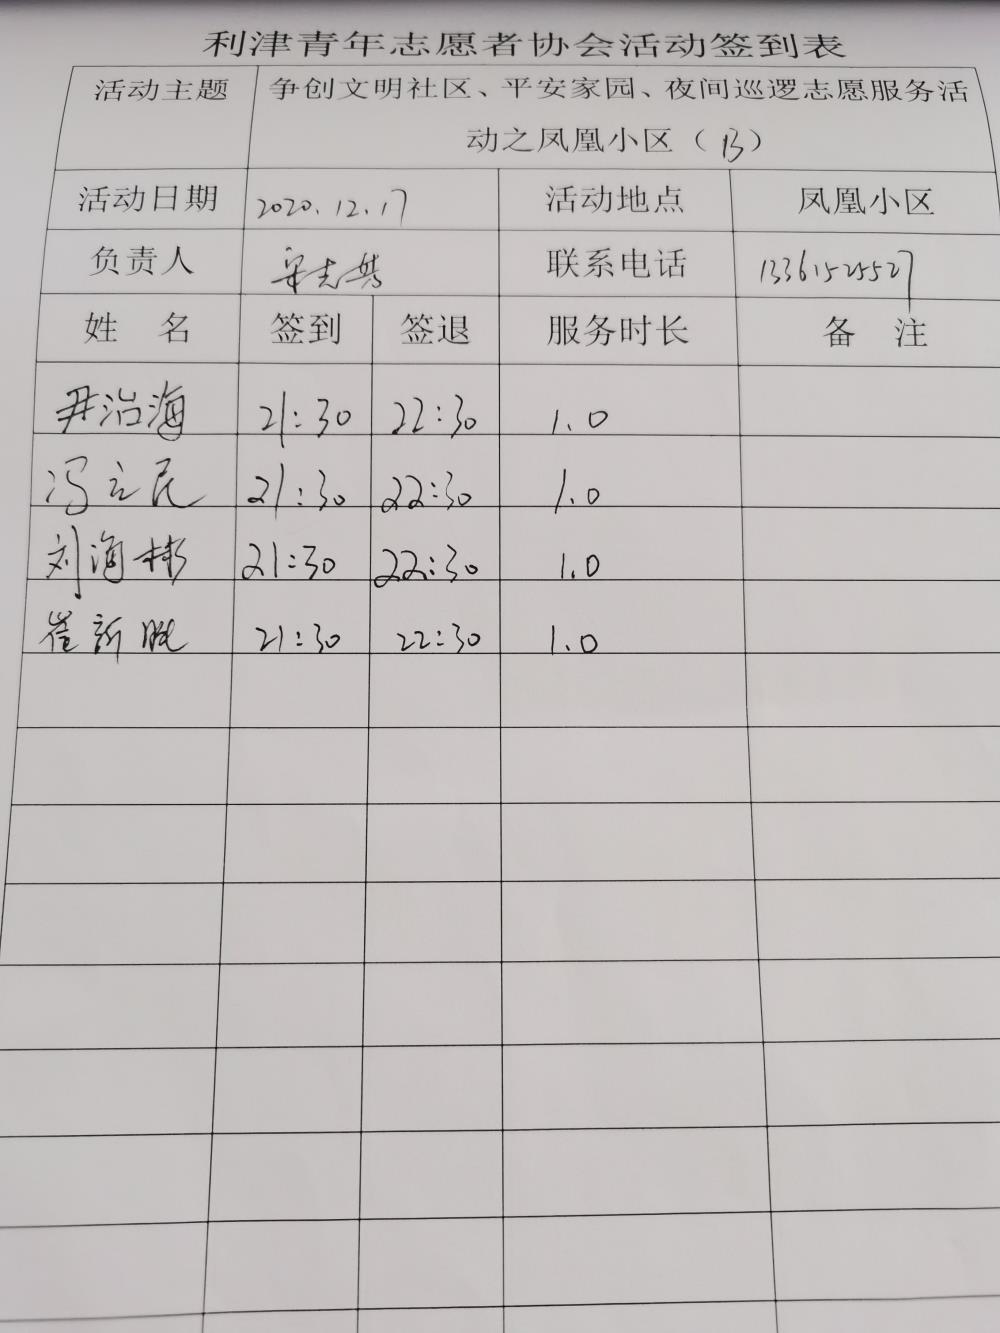 利津青年志愿者协会活动签到表
活动主题 争创文明社区、平安家园、夜间巡逻志愿服务活
动之凤凰小区（13）
活动日期 2020.12.17 活动地点 凤凰小区
负责人 联系电话 13361525527
姓 名 签到 签退 服务时长 备 注
尹治海 21:30 22:30 1.0
冯立民 21:30 22:30 1.0
刘海彬 21:30 22:30 1.0
崔新 21:30 22:30 1.0